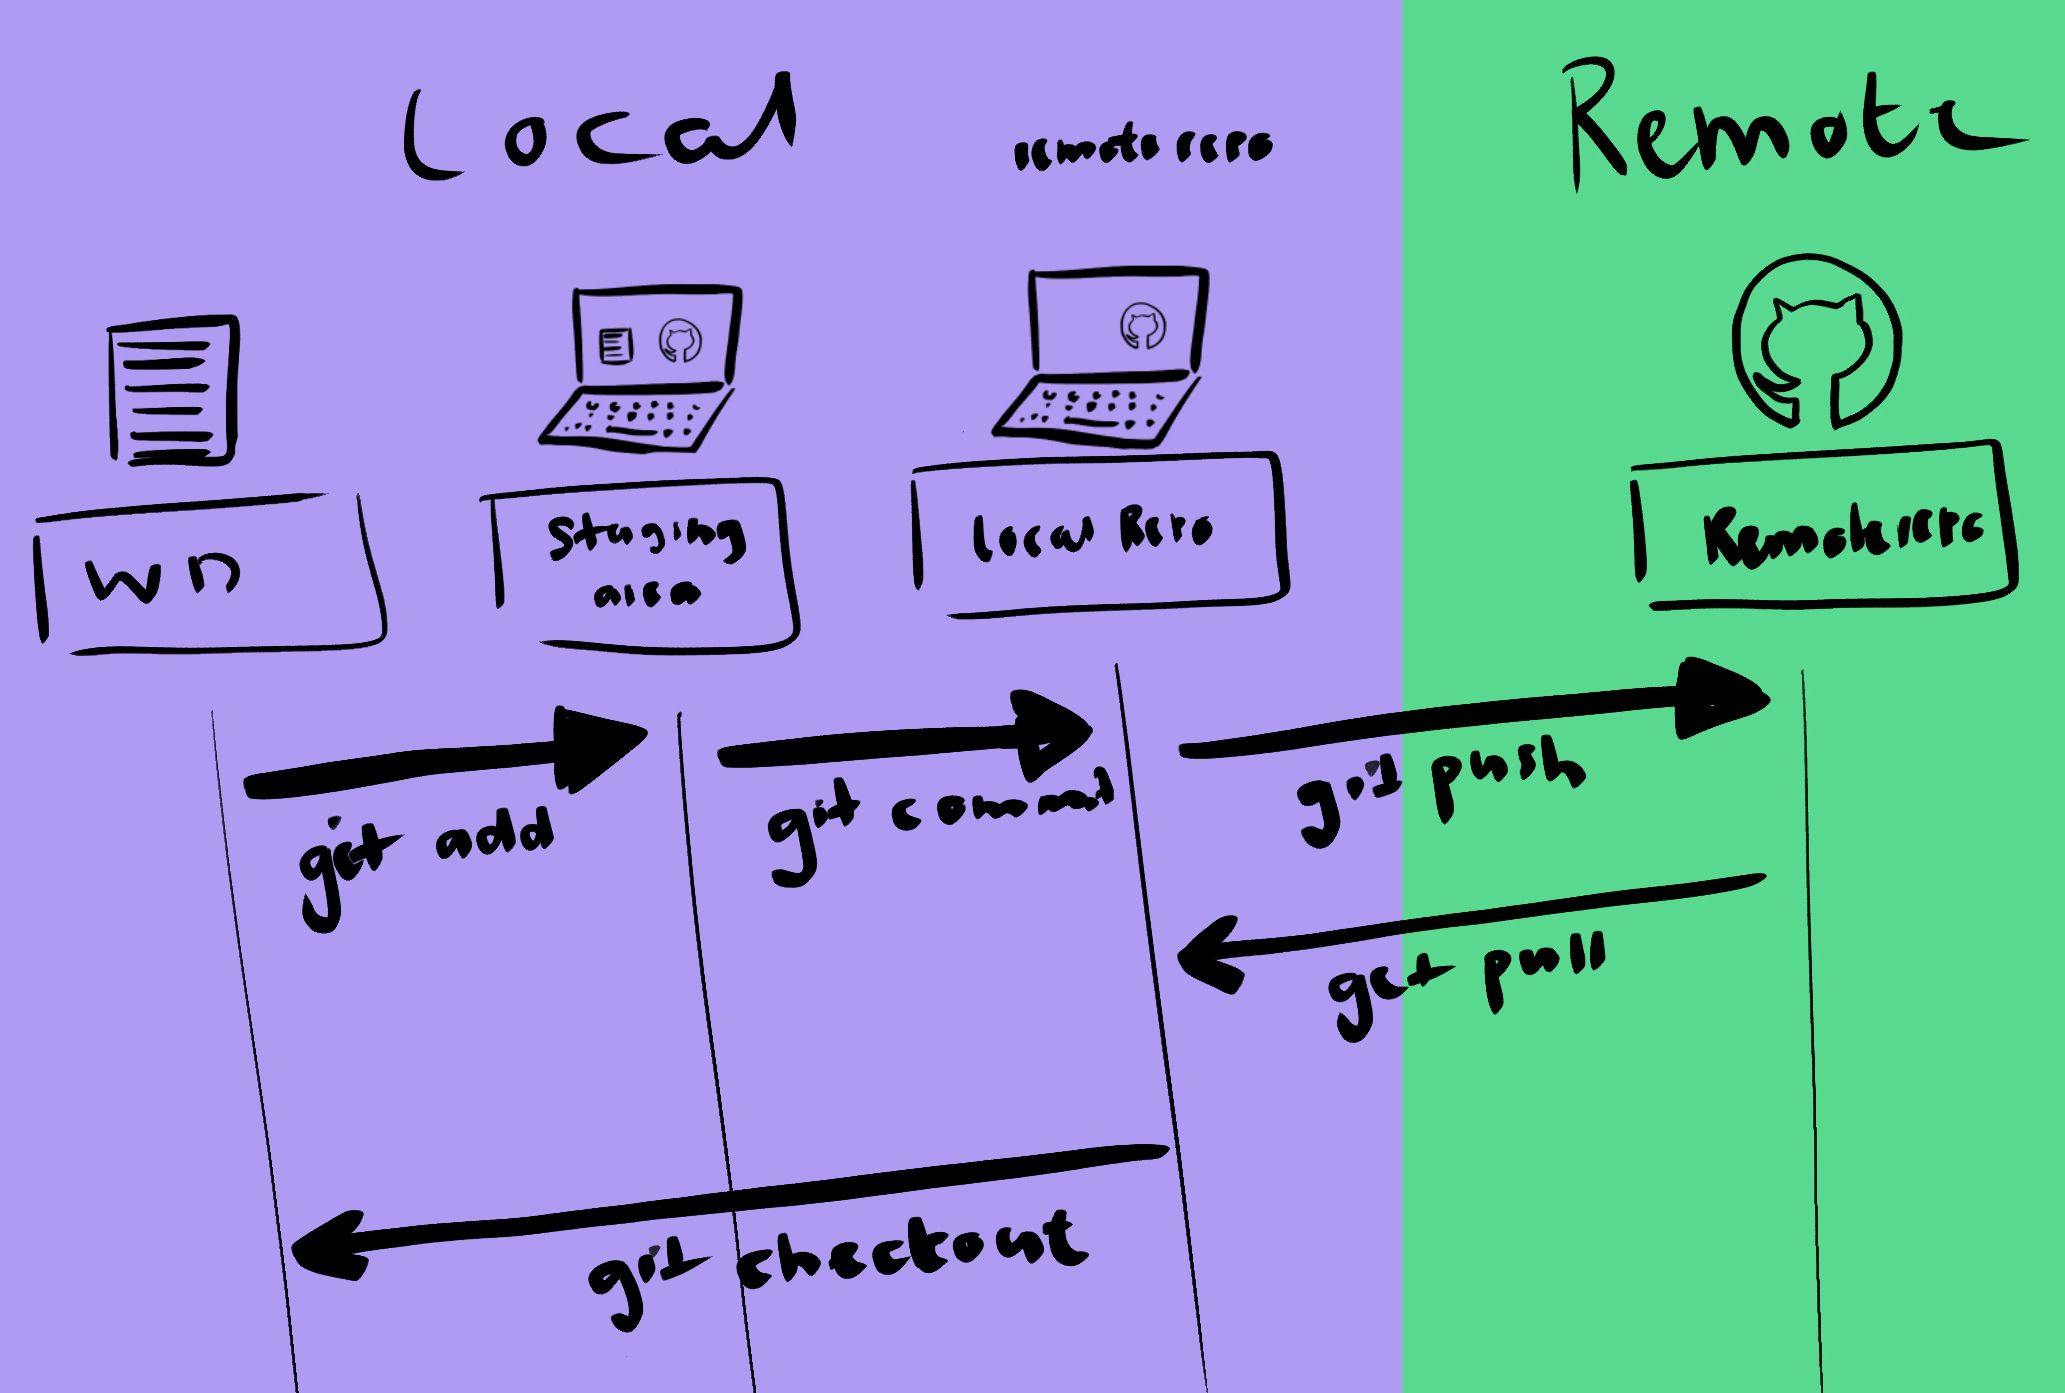 Local
remote repo
Remote
WD
Staging
area
Local Repo
Remote repo
git add
git commit
git push
git pull
git checkout